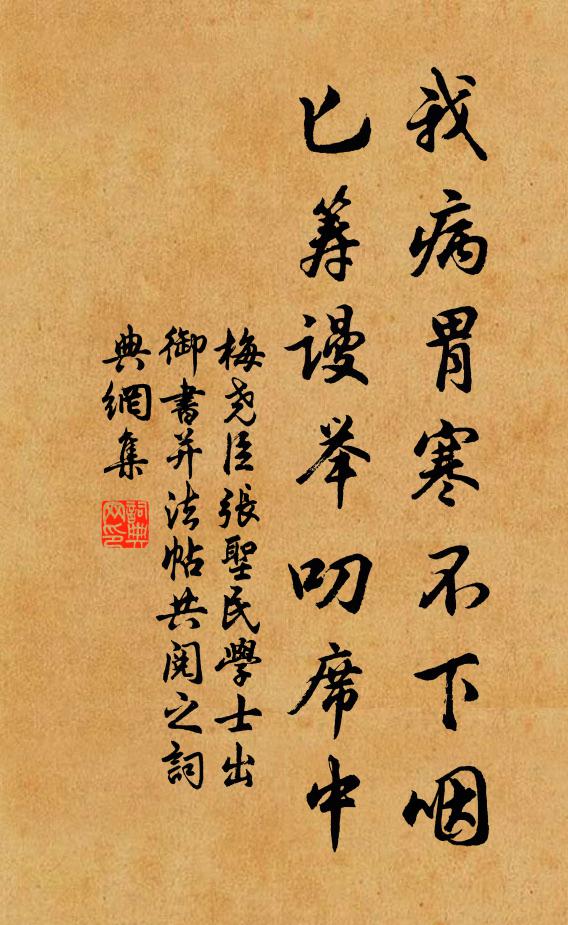 我病胃寒不下咽
已筹谩举叨席中
梅尧臣張聖民學士出
御書并法帖共阅之詞
典網集
詞典
网印